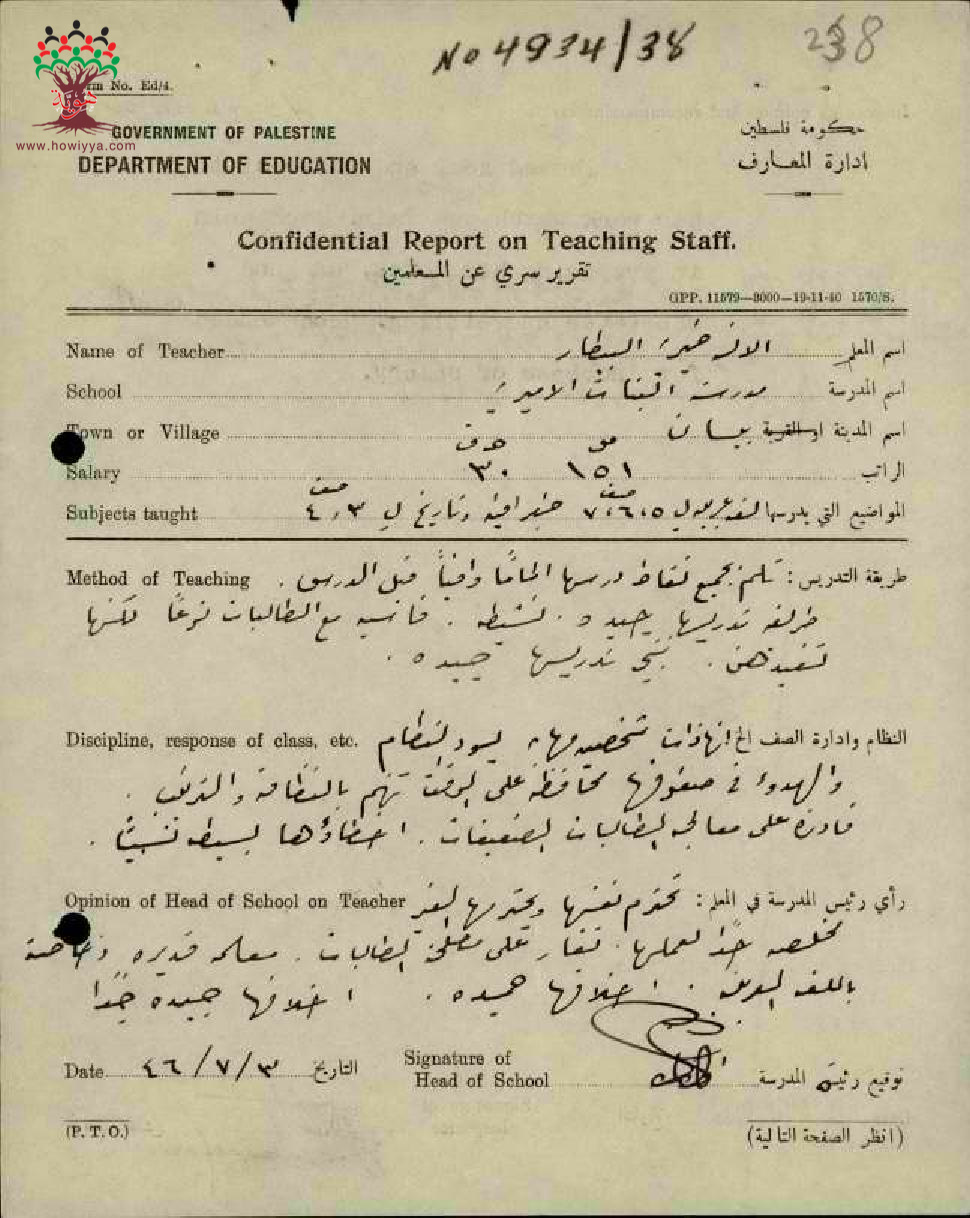 No 4934/38
238
Form No. Ed/4.
هوية
www.howiyya.com
GOVERNMENT OF PALESTINE
حكومة فلسطين
DEPARTMENT OF EDUCATION
ادارة المعارف
Confidential Report on Teaching Staff.
تقرير سري عن المعلمين
GPP. 11579—3000—19-11-40 1570/S.
Name of Teacher اسم المعلم الآنسة خيرية البيطار
School اسم المدرسة مدرسة البنات الاميرية
Town or Village اسم المدينة او القرية بيسان
Salary الراتب ١٥١ ٣٠
Subjects taught المواضيع التي يدرسها لغة عربية في ٥، ٦، ٧ صف جغرافية وتاريخ في ٣، ٤ صف
Method of Teaching طريقة التدريس : تلم بجميع نقاط درسها الماماً وافياً قبل الدرس .
طريقة تدريسها جيدة ونشيطة . قاسية مع الطالبات نوعاً لكنها
تفيدهن . نتيجة تدريسها جيدة .
Discipline, response of class, etc. النظام وادارة الصف الخ انها ذات شخصية مهابة يسود النظام
والهدوء في صفوفها محافظة على الوقت تهتم بالنظافة والترتيب .
قادرة على معالجة الطالبات الضعيفات . اخطاؤها بسيطة نسبياً .
Opinion of Head of School on Teacher رأي رئيس المدرسة في المعلم : تحترم نفسها ويحترمها الغير
مخلصة جداً لعملها . تغار على مصلحة الطالبات . معلمة قديرة وخاصة
باللغة العربية . اخلاقها حميدة . اخلاقها جيدة جداً
Date التاريخ ٣/٧/٤٦
Signature of Head of School توقيع رئيس المدرسة
(P. T. O.) (انظر الصفحة التالية)